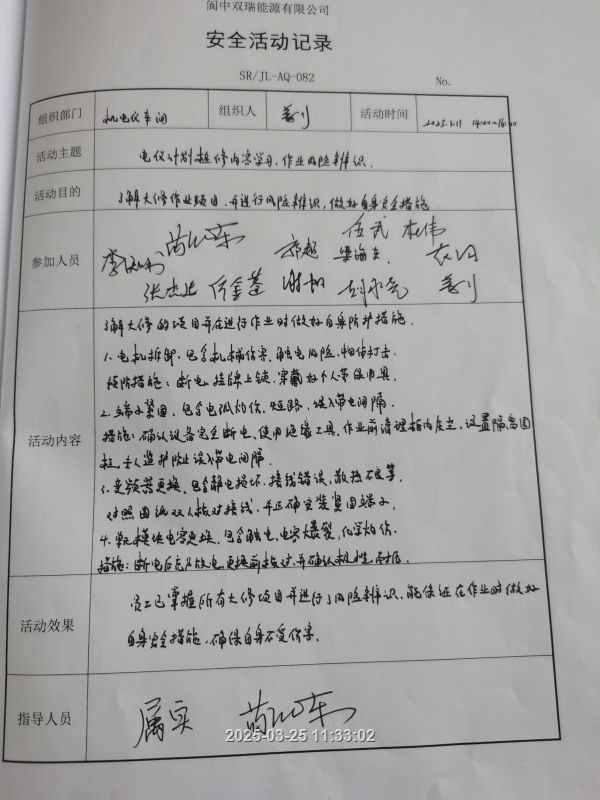 阆中双瑞能源有限公司
安全活动记录
SR/JL-AQ-082 No.
组织部门 机电仪车间 组织人 活动时间 14:00-16:00
活动主题 电仪计划检修内容学习、作业风险辨识.
活动目的 了解大修作业项目,并进行风险辨识,做好自身安全措施
伍武 杜伟
参加人员 郭超 梁海
张杰 谢 刘永亮
了解大修的项目并在进行作业时做好自身防护措施.
1. 电机拆卸,包含机械伤害、触电风险、物体打击
预防措施:断电、挂牌上锁、穿戴好个人劳保用具.
2. 端子紧固,包含电弧灼伤,短路,误入带电间隔
活动内容 措施:确认设备完全断电、使用绝缘工具、作业前清理柜内灰尘,设置隔离围
栏,专人监护防止误入带电间隔.
3. 变频器更换,包含静电损坏、接线错误,散热不良等.
对照图纸双人核对接线,并正确安装紧固端子.
4. 单元模块电容更换,包含触电、电容爆裂,化学灼伤
措施:断电后充分放电,更换前核对,并确认极性
活动效果 员工已掌握所有大修项目并进行了风险辨识,能保证在作业时做好
自身安全措施,确保自身不受伤害.
指导人员 属实
2025-03-25 11:33:02